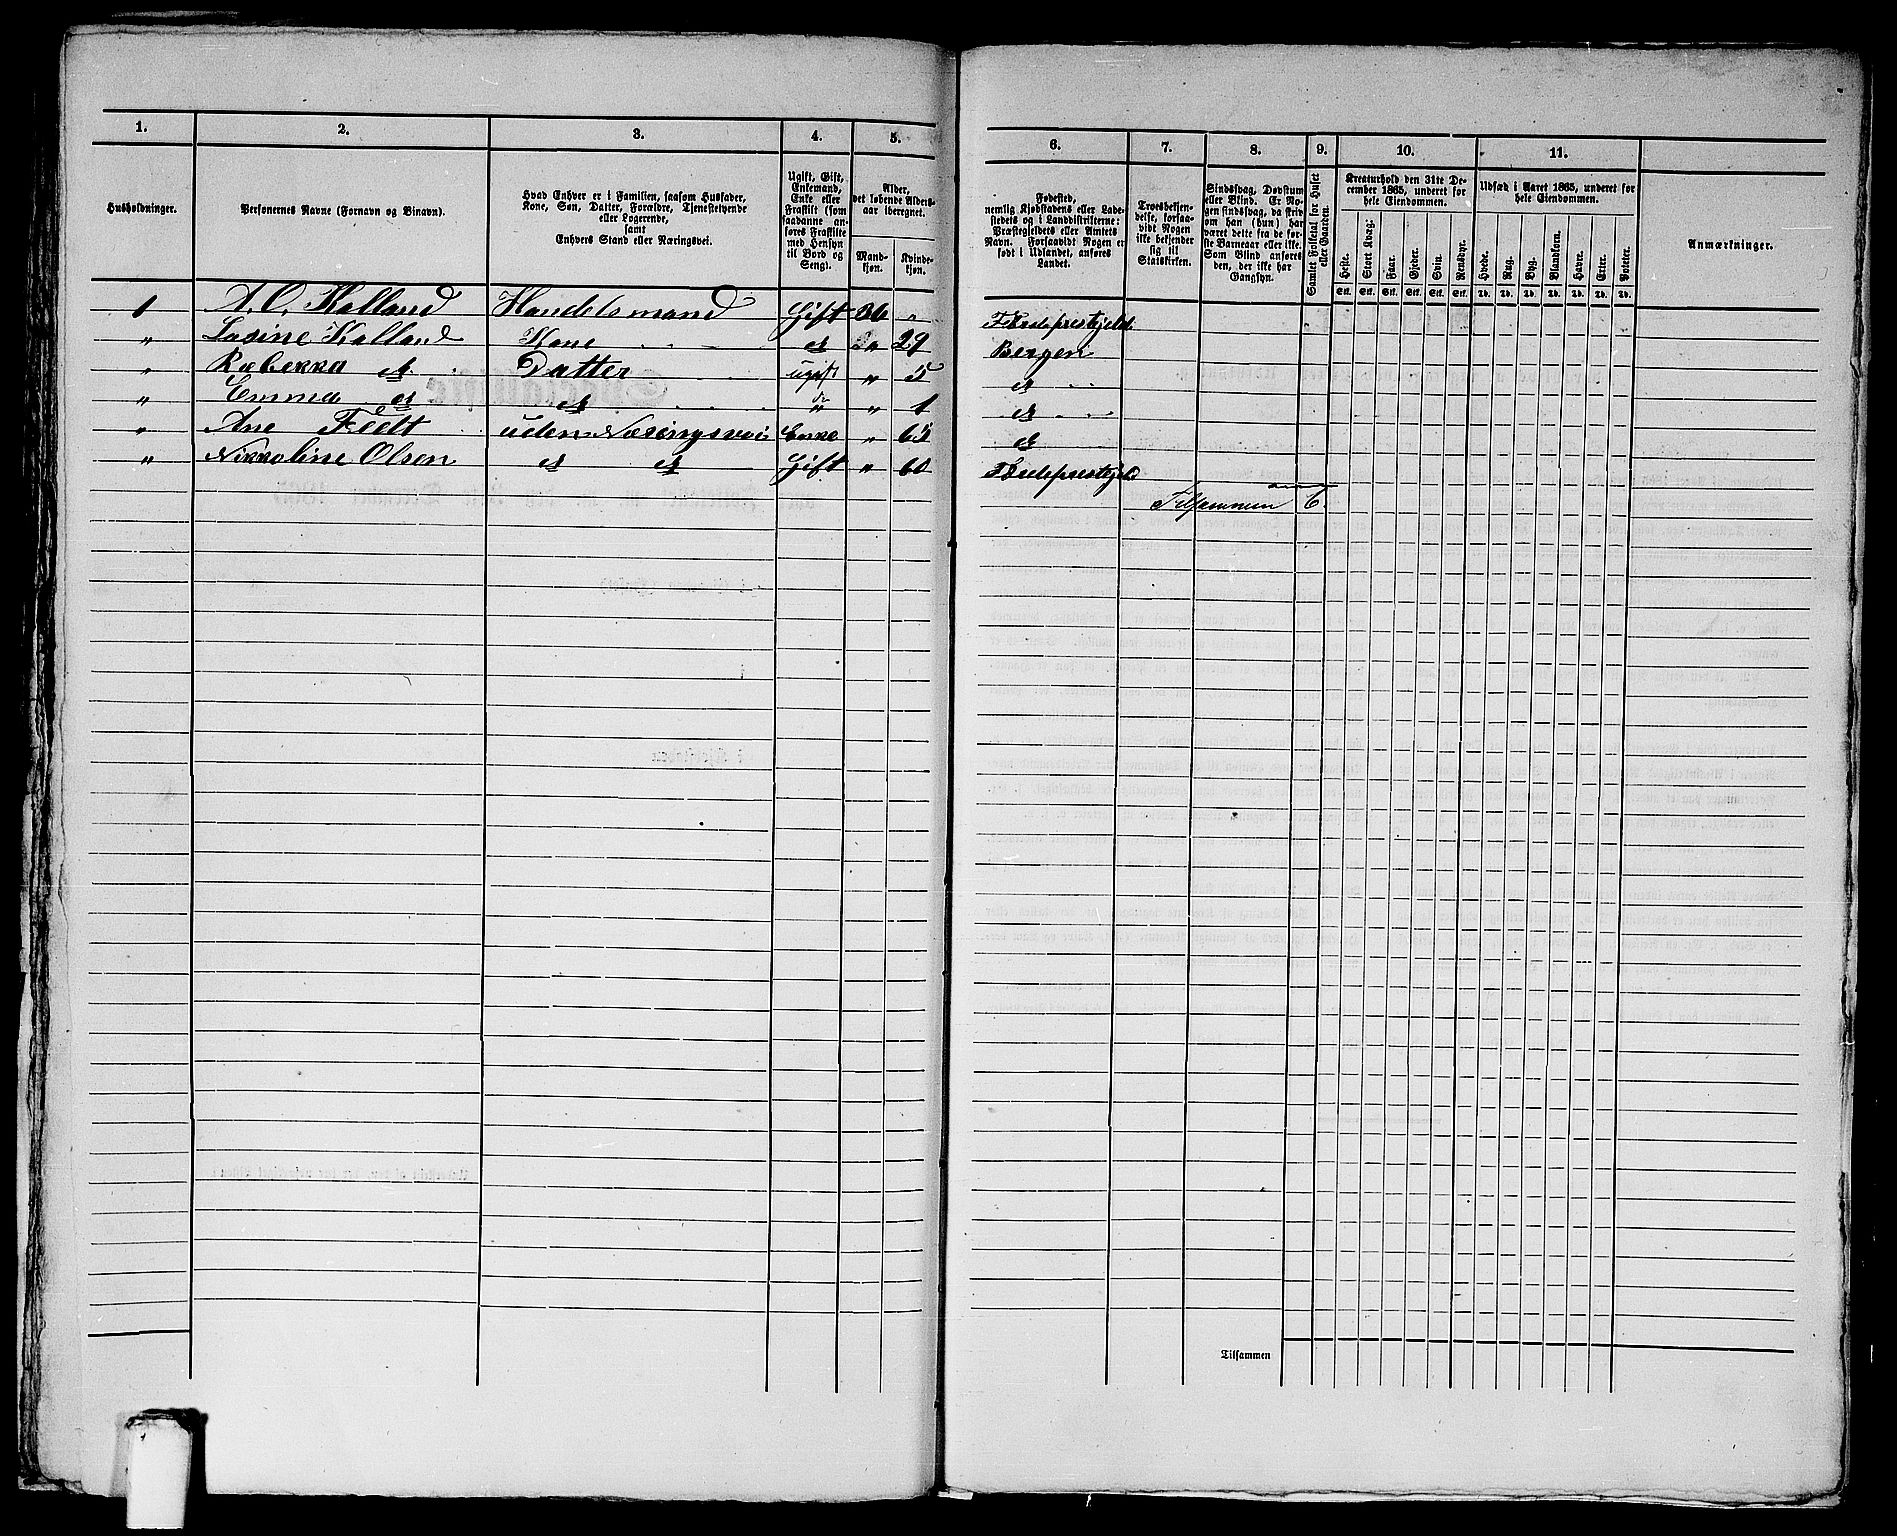 1. 2. 3. 4. 5. 6. 7. 8. 9. 10. 11.
Husholdninger.
Personernes Navne (Fornavn og Binavn).
Hvad Enhver er i Familien, saasom Husfader,
Kone, Søn, Datter, Forældre, Tjenestetyende
eller Logerende,
samt
Enhvers Stand eller Næringsvei.
Ugift, Gift,
Enkemand,
Enke eller
Fraskilt (som
saadanne an-
føres Fraskilte
med Hensyn
til Bord og
Seng).
Alder,
det løbende Alders-
aar iberegnet.
Mand-
kjøn.
Kvinde-
kjøn.
Fødested,
nemlig Kjøbstadens eller Lade-
stedets og i Landdistrikterne:
Præstegjeldets eller Amtets
Navn. Forsaavidt Nogen er
født i Udlandet, anføres
Landet.
Troesbekjen-
delse, forsaa-
vidt Nogen
ikke bekjender
sig til
Statskirken.
Sindssvag, Døvstum
eller Blind. Er No-
gen sindssvag, da skriv
om han (hun) har
været dette fra de før-
ste Barneaar eller ikke.
Som Blind anføres
den, der ikke har
Gangsyn.
Samlet Folketal for Huset
eller Gaarden.
Kreaturhold den 31te De-
cember 1865, underet for
hele Eiendommen.
Heste. Stort Kvæg. Faar. Gjeder. Svin. Rensdyr.
Stk. Stk. Stk. Stk. Stk. Stk.
Udsæd i Aaret 1865, underet for
hele Eiendommen.
Hvede. Rug. Byg. Blandkorn. Havre. Erter. Poteter.
Td. Td. Td. Td. Td. Td. Td.
Anmærkninger.
1 A. O. Kalland Handelsmand Gift 36 „ Føredeprestegjeld
„ Lasine Kalland Kone do „ 29 Bergen
„ Rebekka do Datter ugift „ 5 do
„ Emma do do do „ 1 do
„ Ane Feldt uden Næringsvei Enke „ 65 do
„ Nikkoline Olsen do do Gift „ 60
Tilsammen 6.
Tilsammen